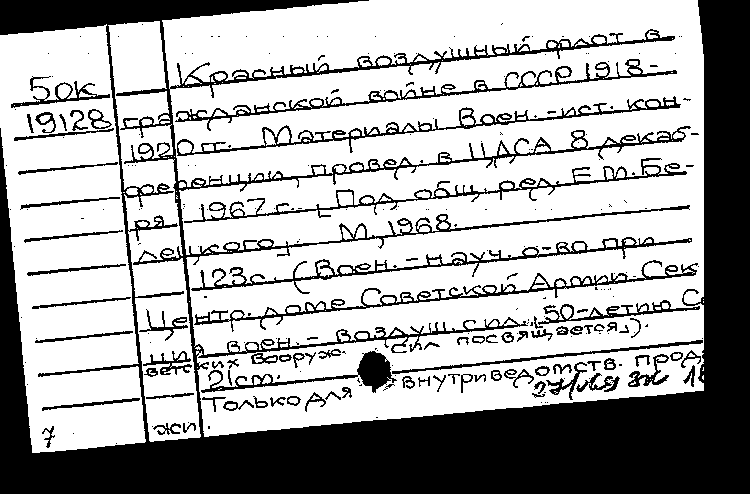 50К
19128
Красный воздушный флот в
гражданской войне в СССР 1918-
1920 гг. Материалы Воен.-ист. кон-
ференции, провед. в ЦДСА 8 декаб-
ря 1967 г. [Под общ. ред. Е.М. Бе-
лецкого]. М., 1968.
123с. (Воен.-науч. о-во при
Центр. доме Советской Армии. Сек
ция воен.-воздуш. сил. [50-летию Со
ветских Вооруж. сил посвящается]).
21см.
Только для внутриведомств. прода
жи.
7